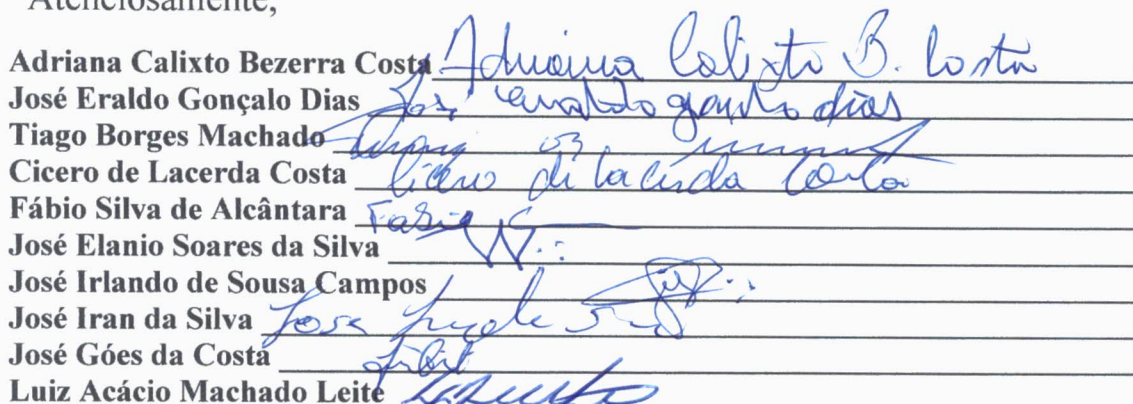 Atenciosamente,
Adriana Calixto Bezerra Costa Adriana Calixto B. Costa
José Eraldo Gonçalo Dias José Eraldo Gonçalo dias
Tiago Borges Machado
Cicero de Lacerda Costa Cicero de Lacerda Costa
Fábio Silva de Alcântara Fabio
José Elanio Soares da Silva
José Irlando de Sousa Campos
José Iran da Silva Jose
José Góes da Costa
Luiz Acácio Machado Leite